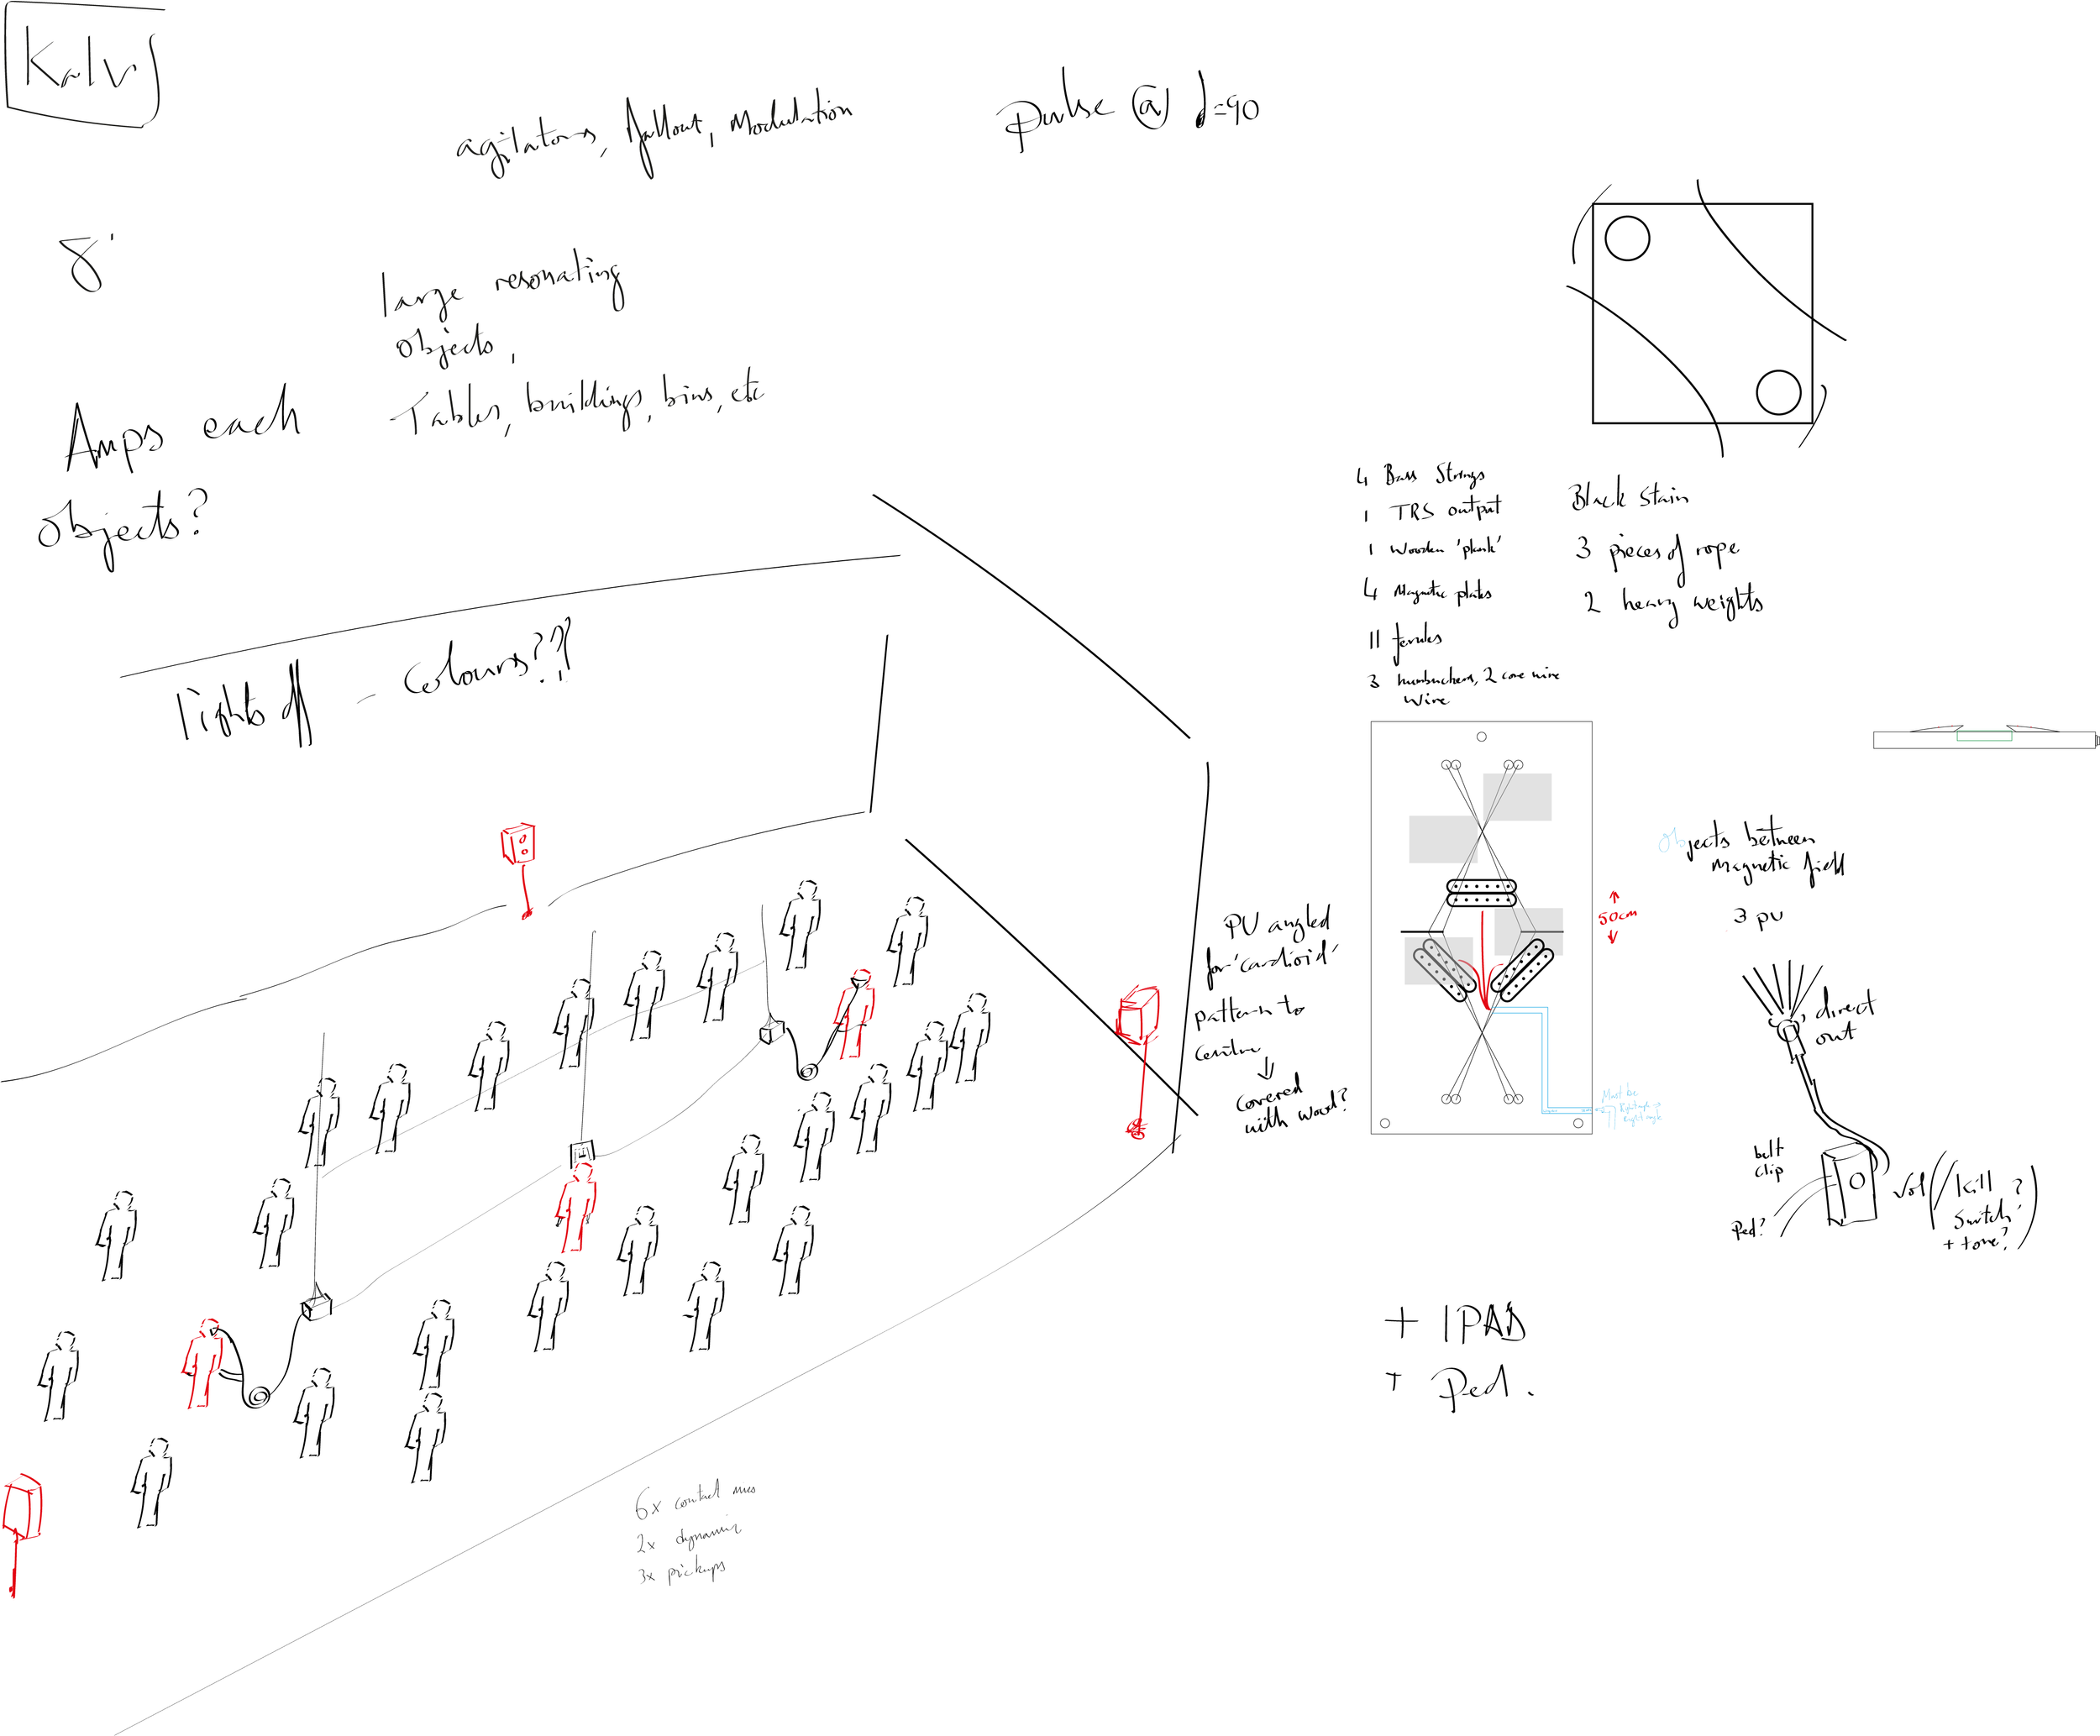 Kalv
agitators, fallout, Modulation
pulse @ ♩=90
8'
large resonating
objects,
Tables, buildings, bins, etc
Amps each
objects?
Lights off - Colours??
4 Bass Strings
1 TRS output
1 Wooden 'plank'
4 Magnetic plates
11 ferules
3 humbuckers, 2 core wire
wire
Black Stain
3 pieces of rope
2 heavy weights
Objects between
Magnetic field
3 pu
50cm
PU angled
for 'cardioid'
pattern to
centre
covered
with wood?
Must be
Right angle
direct
out
belt
clip
Ped?
Vol (/Kill
Switch?
+ tone?)
+ IPAD
+ Ped.
6x contact mics
2x dynamic
3x pickups